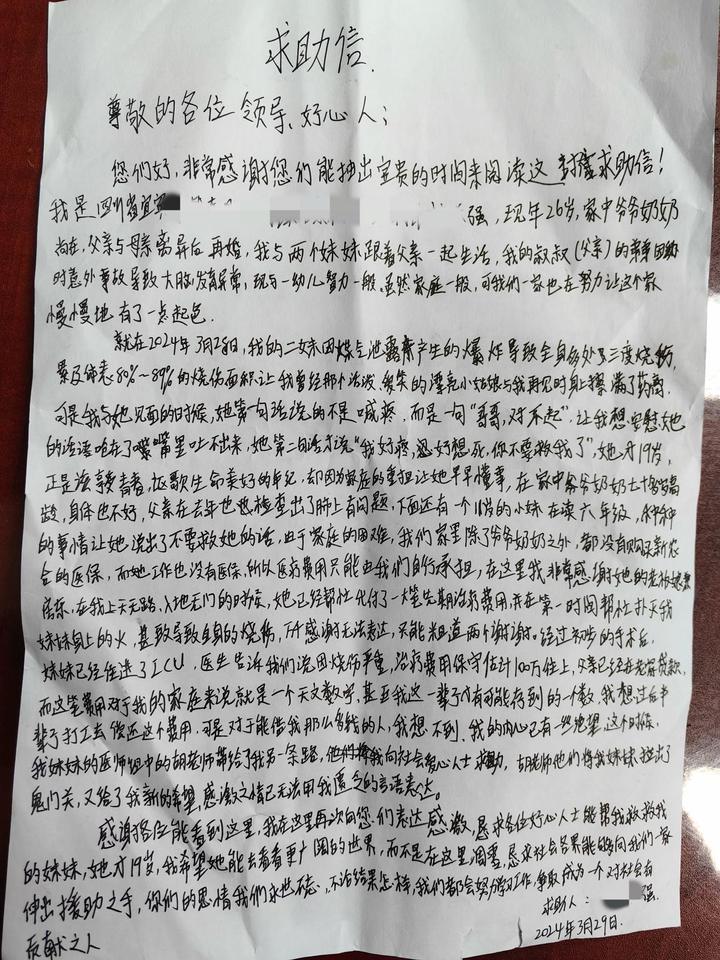 求助信.
尊敬的各位领导、好心人；
您们好，非常感谢您们能抽出宝贵的时间来阅读这封求助信！
我是四川省宜宾 强，现年26岁，家中爷爷奶奶
尚在，父亲与母亲离异后再婚，我与两个妹妹跟着父亲一起生活，我的叔叔(父亲)的弟弟因幼
时意外事故导致大脑发育异常，现与一幼儿智力一般，虽然家庭一般，可我们一家也在努力让这个家
慢慢地有了一点起色.
就在2024年3月28日，我的二妹因煤气泄露产生的爆炸导致全身多处三度烧伤，
累及体表80%~89%的烧伤面积让我曾经那个活泼、爱笑的漂亮小姑娘与我再见时身上擦满了药膏.
可是我与她见面的时候，她第一句话说的不是喊疼，而是一句“哥哥，对不起”，让我想安慰她
的话语呛在了嘴里吐不出来，她第二句话才说“我好疼，好想死，你不要救我了”，她才19岁，
正是读青春，讴歌生命美好的年纪，却因为家庭的重担让她早早懂事，在家中爷爷奶奶七十多岁高
龄，身体也不好，父亲在去年也检查出了肺上有问题，下面还有一个11岁的小妹在读六年级，种种
的事情让她说出了不要救她的话，由于家庭的困难，我们家里除了爷爷奶奶之外，都没有购买新农
合的医保，而她工作也没有医保，所以医疗费用只能由我们自行承担，在这里我非常感谢她的老板娘
房东，在我上天无路，入地无门的时候，她已经帮忙代付了一大笔先期治疗费用并在第一时间帮忙扑灭我
妹妹身上的火，甚至导致自身的烧伤，千万感谢无法表达，只能来道两个谢谢.经过初步的手术后
妹妹已经住进了ICU，医生告诉我们说因烧伤严重，治疗费用保守估计100万往上，父亲已经在老家贷款，
而这笔费用对于我的家庭来说就是一个天文数字，甚至我这一辈子没有可能存到的一个数，我想过后半
辈子打工去偿还这个费用，可是对于能借我那么多钱的人，我想不到.我的内心已有一些绝望，这个时候
我妹妹的医师组中的胡老师带给了我另一条路，他们将我向社会爱心人士求助，胡老师他们将我妹妹拉出了
鬼门关，又给了我新的希望，感激之情已无法用我匮乏的言语表达.
感谢各位能看到这里，我在这里再次向您们表达感激，恳求各位好心人士能帮我救救我
的妹妹，她才19岁，我希望她能去看看更广阔的世界，而不是在这里凋零，恳求社会各界能够向我们一家
伸出援助之手，你们的恩情我们永世不忘，不论结果怎样，我们都会努力学习工作，争取成为一个对社会有
贡献之人
求助人： 强.
2024年3月29日.